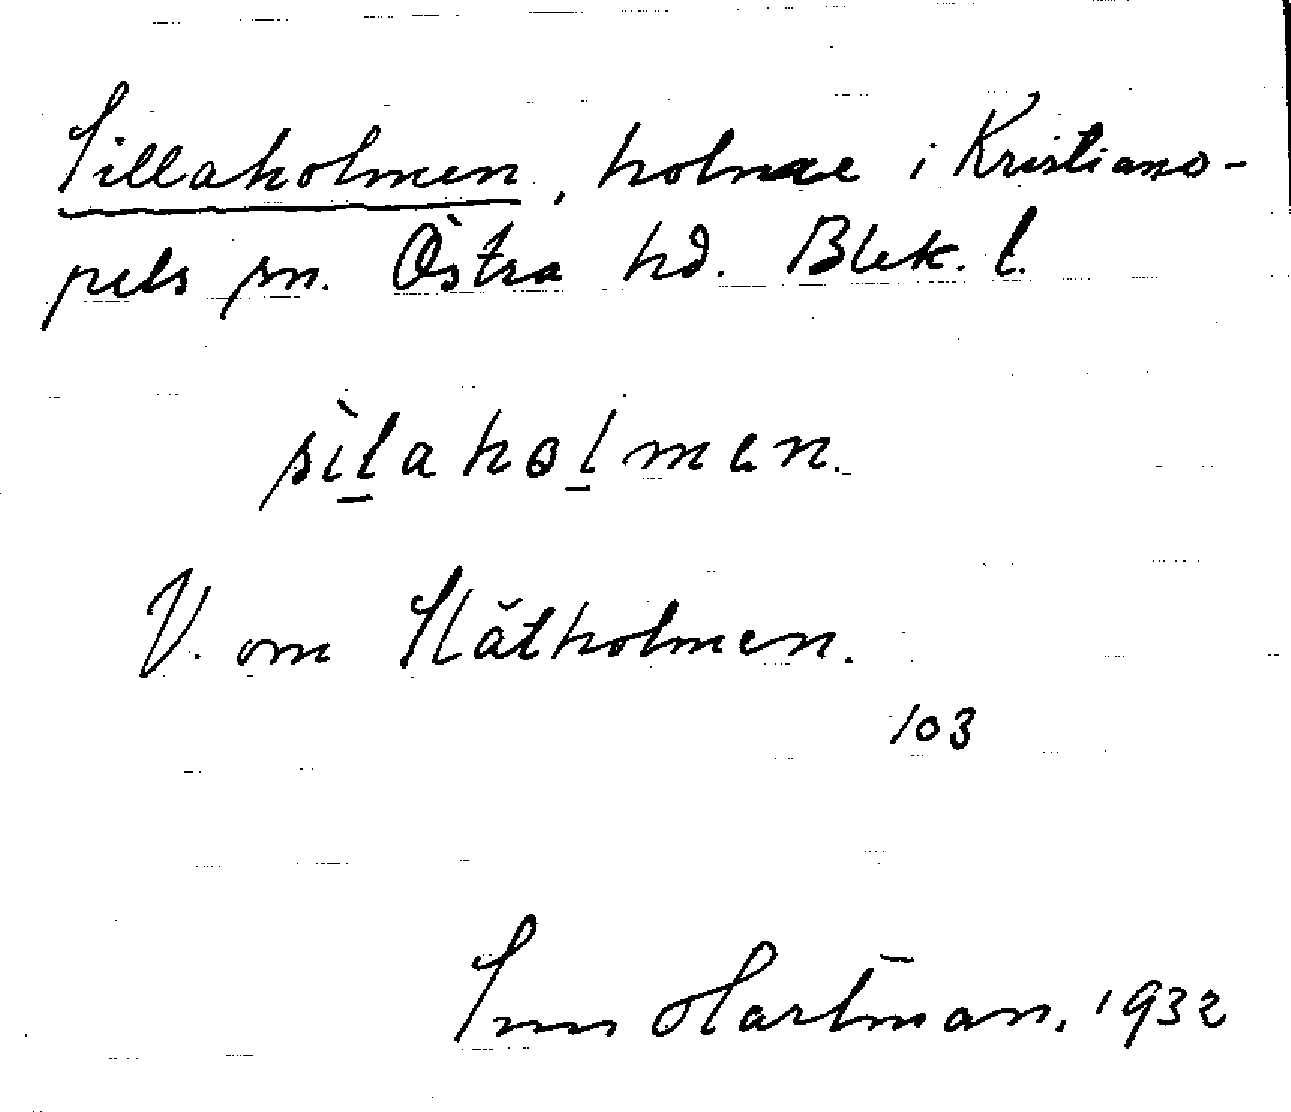 Sillaholmen, holme i Kristiano-
pels sn. Östra hd. Blek. l.
sìlaholmen.
V. om Slätholmen.
103
Sven Hartman, 1932